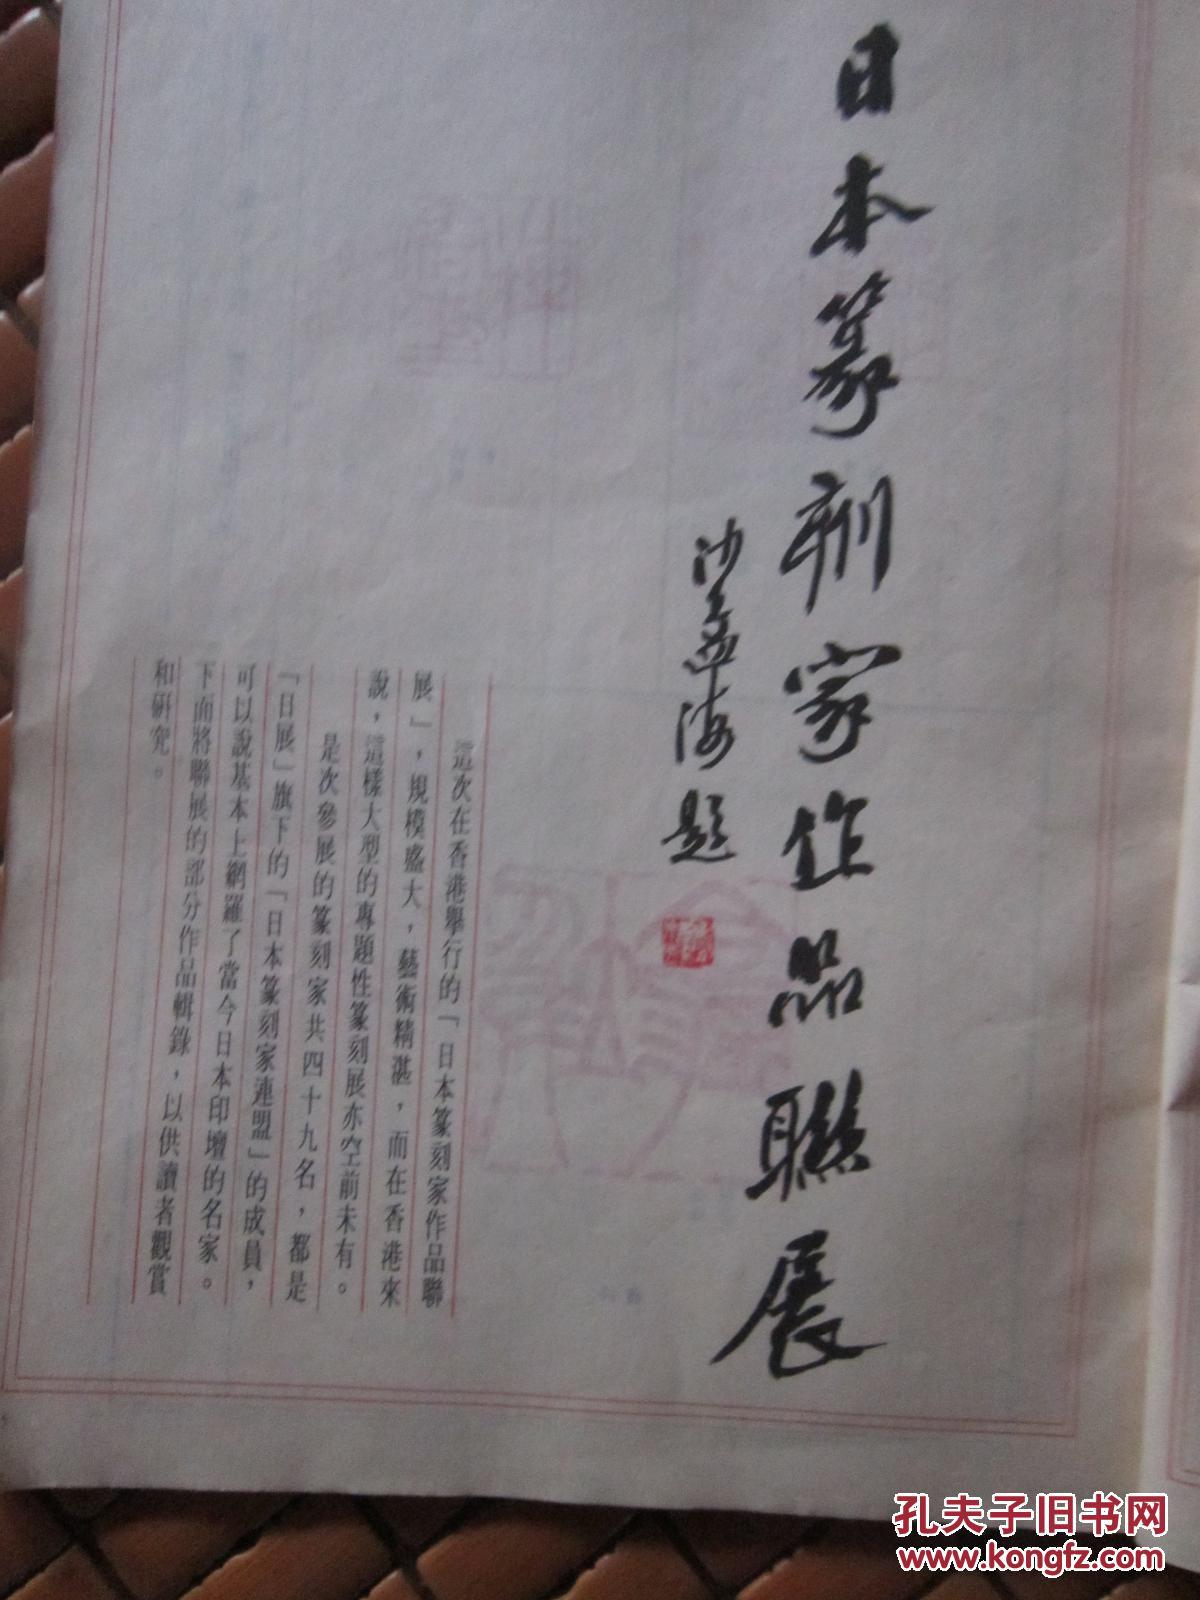 日本篆刻家作品聯展
沙孟海題
這次在香港舉行的「日本篆刻家作品聯
展」，規模盛大，藝術精湛，而在香港來
說，這樣大型的專題性篆刻展亦空前未有。
是次參展的篆刻家共四十九名，都是
「日展」旗下的「日本篆刻家連盟」的成員，
可以說基本上網羅了當今日本印壇的名家。
下面將聯展的部分作品輯錄，以供讀者觀賞
和研究。
孔夫子旧书网
www.kongfz.com